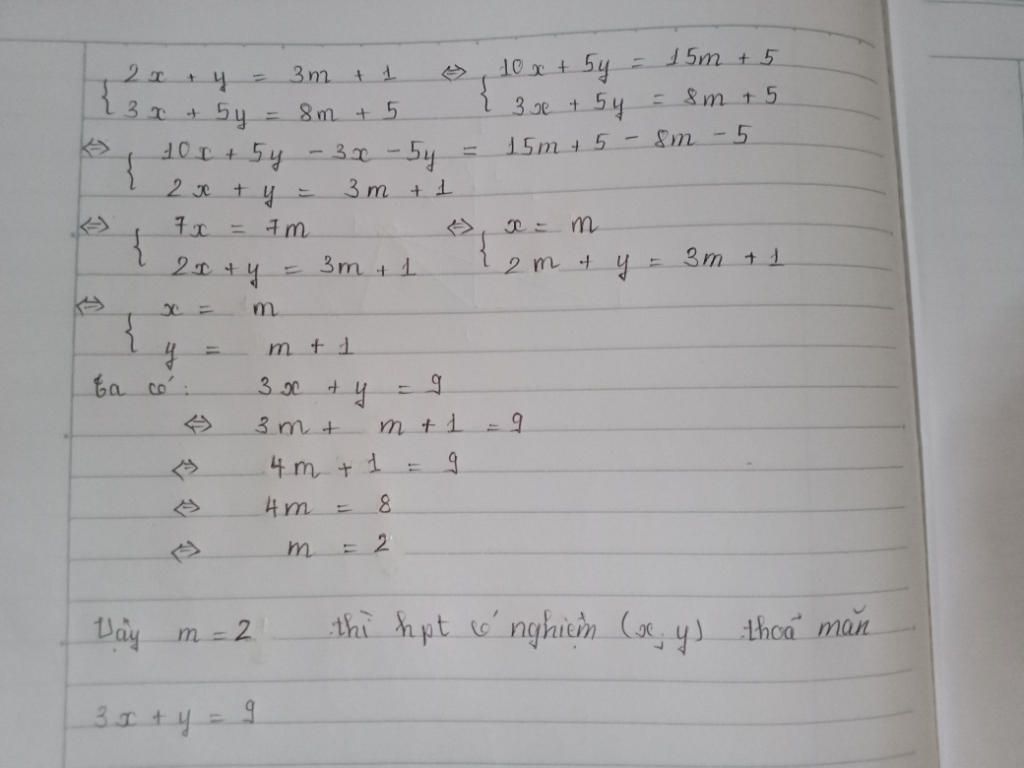 { 2x + y = 3m + 1 ⇔ { 10x + 5y = 15m + 5
3x + 5y = 8m + 5 3x + 5y = 8m + 5
⇔ { 10x + 5y - 3x - 5y = 15m + 5 - 8m - 5
2x + y = 3m + 1
⇔ { 7x = 7m ⇔ { x = m
2x + y = 3m + 1 2m + y = 3m + 1
⇔ { x = m
y = m + 1
ta có: 3x + y = 9
⇔ 3m + m + 1 = 9
⇔ 4m + 1 = 9
⇔ 4m = 8
⇔ m = 2
Vậy m = 2 thì hpt có nghiệm (x, y) thoả mãn
3x + y = 9